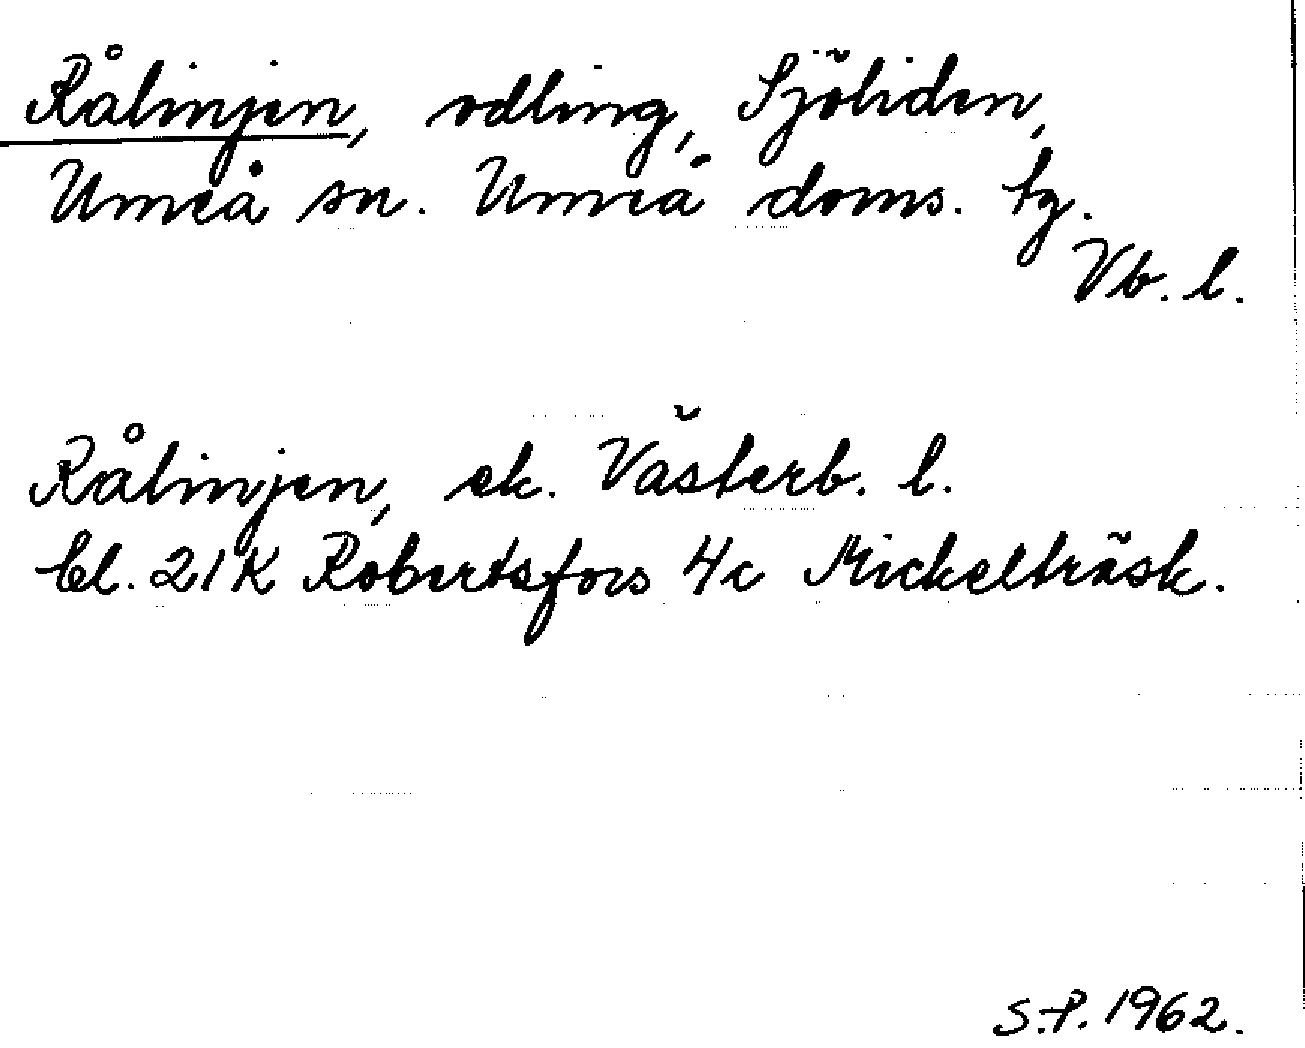 Rålinjen, odling, Sjöliden,
Umeå sn. Umeå doms. tg.
Vb. l.
Rålinjen, ek. Västerb. l.
bl. 21K Robertsfors 4c Mickelträsk.
S.P. 1962.